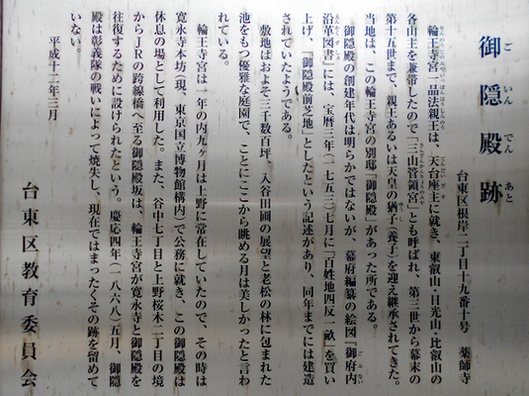 御隠殿跡
ご いん でん あと
台東区根岸二丁目十九番十号 薬師寺
輪王寺宮一品法親王は、天台座主に就き、東叡山・日光山・比叡山の
各山主を兼帯したので「三山管領宮」とも呼ばれ、第三世から幕末の
第十五世まで、親王あるいは天皇の猶子(養子)を迎え継承されてきた。
当地は、この輪王寺宮の別邸「御隠殿」があった所である。
御隠殿の創建年代は明らかではないが、幕府編纂の絵図『御府内
沿革図書』には、宝暦三年(一七五三)七月に「百姓地四反一畝」を買い
上げ、「御隠殿前芝地」としたという記述があり、同年までには建造
されていたようである。
敷地はおよそ三千数百坪、入谷田圃の展望と老松の林に包まれた
池をもつ優雅な庭園で、ことにここから眺める月は美しかったと言わ
れている。
輪王寺宮は一年の内九ヶ月は上野に常在していたので、その時は
寛永寺本坊(現、東京国立博物館構内)で公務に就き、この御隠殿は
休息の場として利用した。また、谷中七丁目と上野桜木二丁目の境
からJRの跨線橋へ至る御隠殿坂は、輪王寺宮が寛永寺と御隠殿を
往復するために設けられたという。慶応四年(一八六八)五月、御隠
殿は彰義隊の戦いによって焼失し、現在ではまったくその跡を留めて
いない。
平成十二年三月
台東区教育委員会